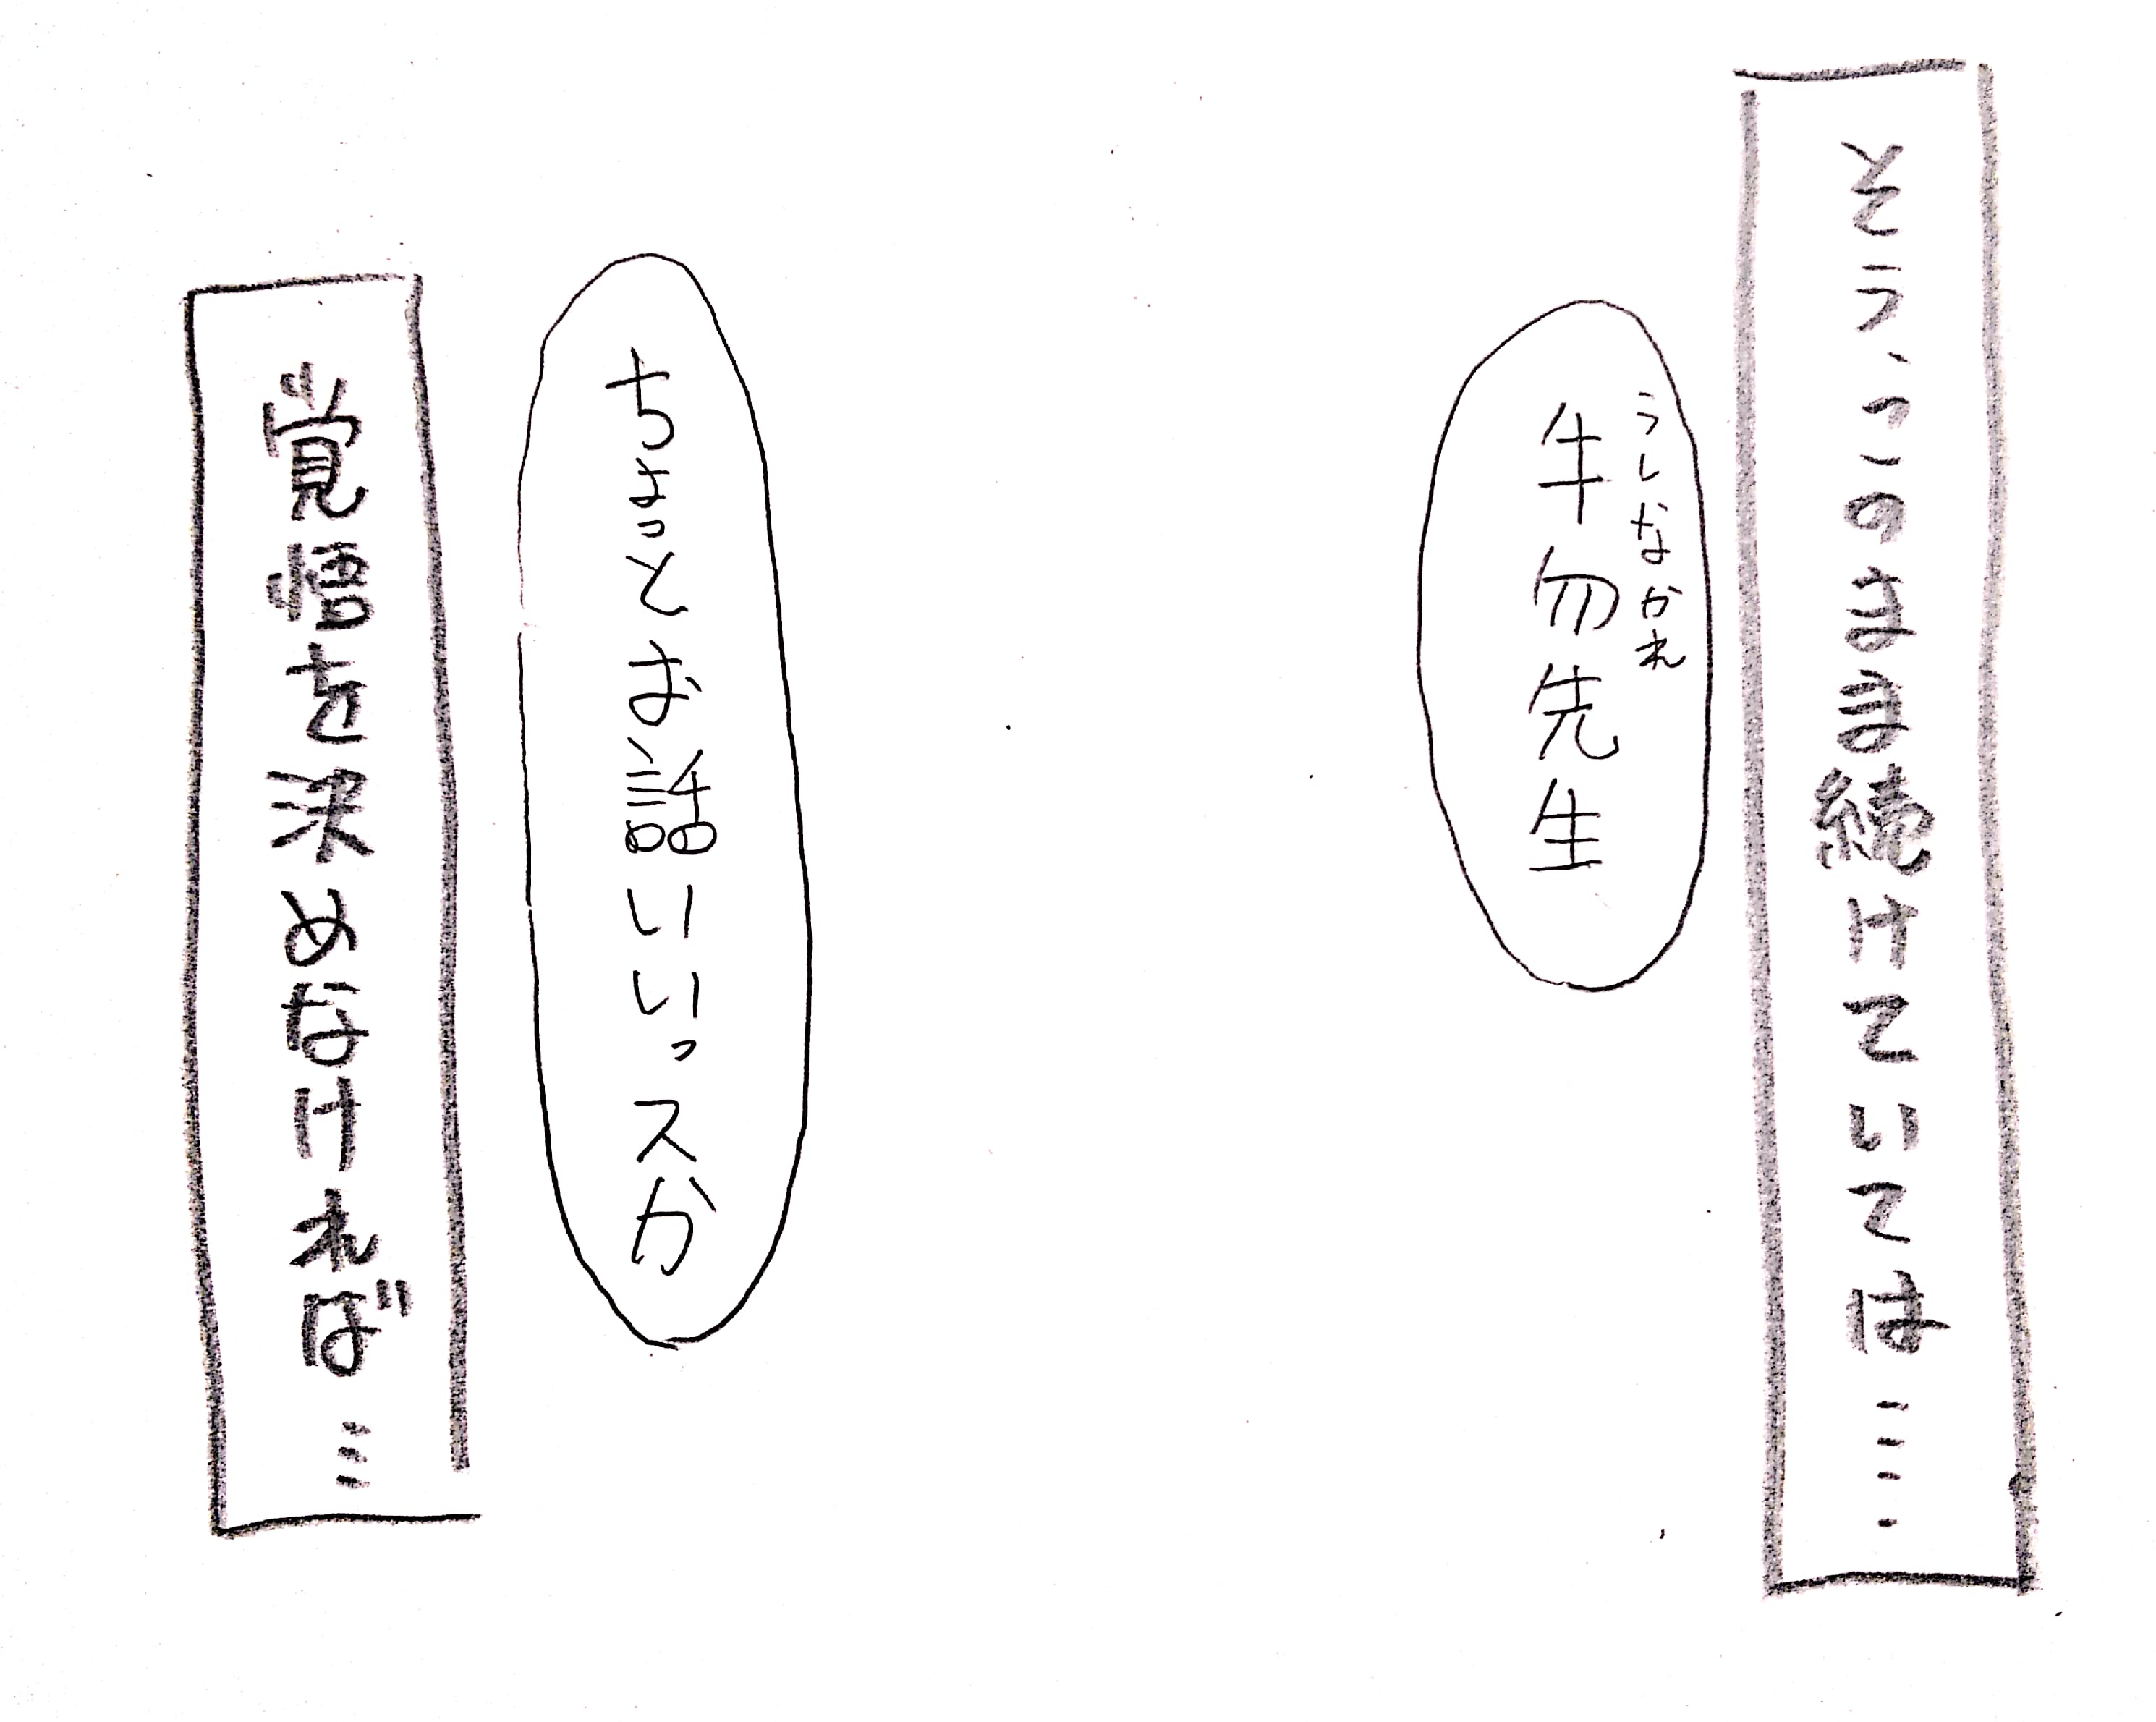 そう、このまま続けていては……
うしなかれ
牛勿先生
ちょっとお話いいっスか
覚悟を決めなければ…